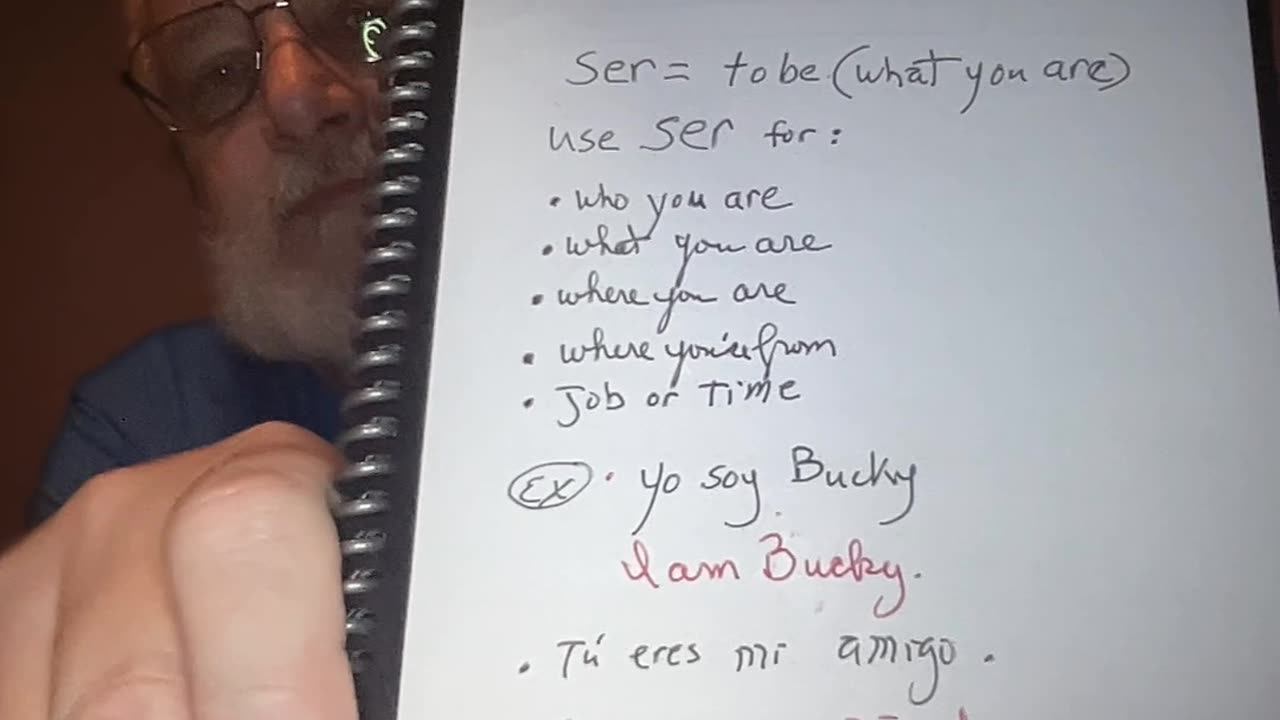 Ser = to be (what you are)
use Ser for:
• who you are
• what you are
• where you are
• where you're from
• Job or Time
EX • yo soy Bucky
I am Bucky.
• Tú eres mi amigo.